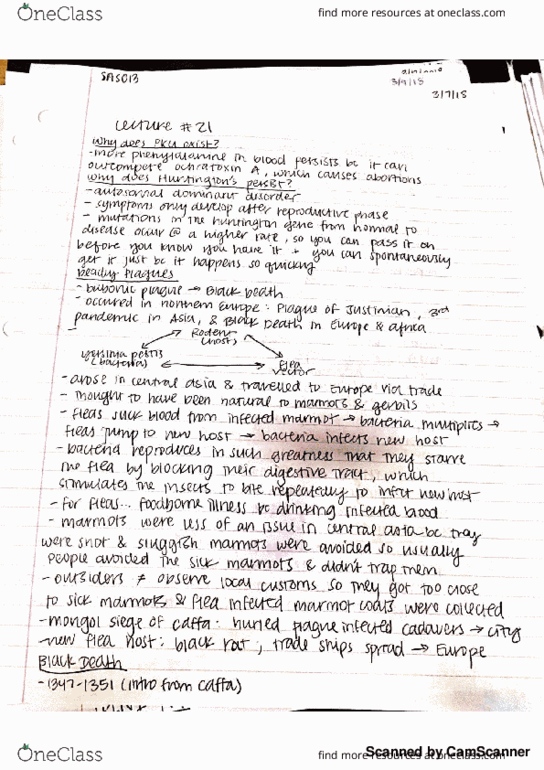 OneClass
find more resources at oneclass.com
SAS013
3/9/18
3/7/18
Lecture #21
Why does PKU exist?
- more phenylalanine in blood persists bc it can
outcompete ochratoxin A, which causes abortions
Why does Huntington's persist?
- autosomal dominant disorder
- symptoms only develop after reproductive phase
- mutations in the huntington gene from normal to
disease occur @ a higher rate, so you can pass it on
before you know you have it + you can spontaneously
get it just bc it happens so quickly
Deadly Plagues
- bubonic plague → Black Death
- occured in northern Europe: Plague of Justinian, 3rd
pandemic in Asia, & Black Death in Europe & africa
Rodent
(host)
yersinia pestis
(bacteria)
Flea
vector
- arose in central asia & travelled to Europe via trade
- thought to have been natural to marmots & gerbils
- fleas suck blood from infected marmot → bacteria multiplies →
fleas jump to new host → bacteria infects new host
- bacteria reproduces in such greatness that they starve
the flea by blocking their digestive tract, which
stimulates the insects to bite repeatedly to infect new host
- for fleas... foodborne illness bc drinking infected blood
- marmots were less of an issue in central asia bc they
were shot & sluggish marmots were avoided so usually
people avoided the sick marmots & didn't trap them
- outsiders ≠ observe local customs so they got too close
to sick marmots & flea infected marmot coats were collected
- mongol siege of caffa: hurled plague infected cadavers → city
- new flea host: black rat; trade ships spread → Europe
Black Death
- 1347-1351 (intro from caffa)
OneClass
find more resources at oneclass.com
Scanned by CamScanner